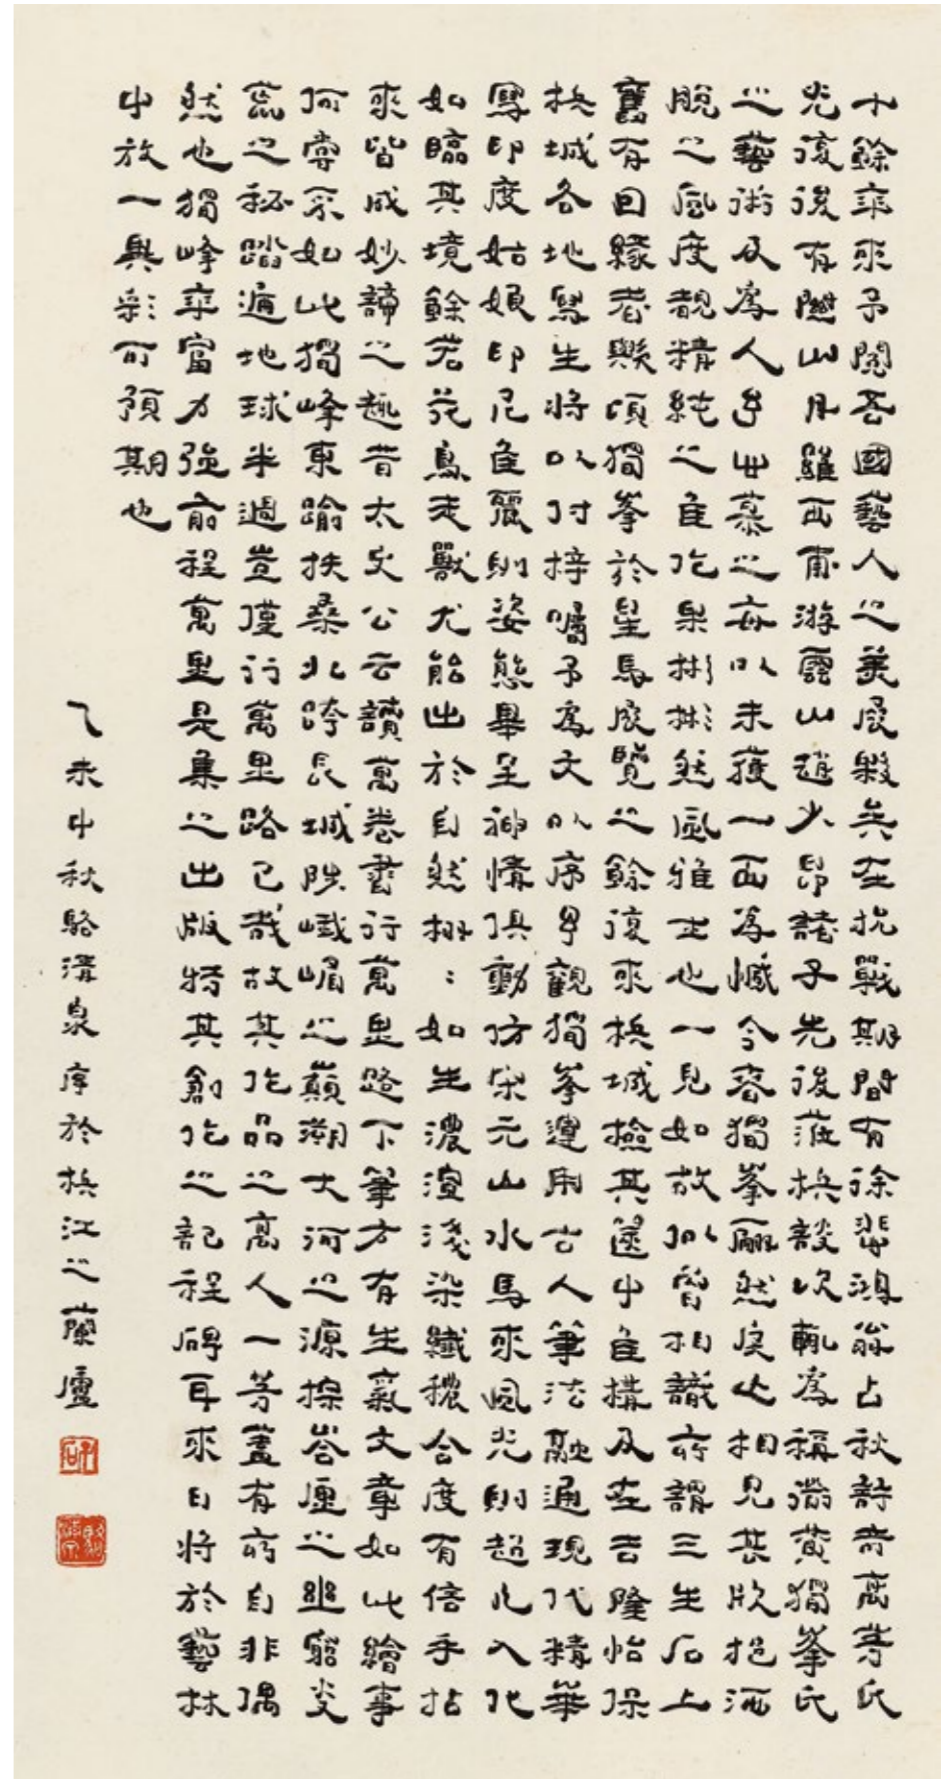 十餘年來予閱吾國藝人之美展夥矣在抗戰期間有徐悲鴻翁占秋許奇高等氏
光復後有關山月羅西甫游雲山趙少昂諸子先後蒞檳談次輒為稱黃獨峯氏
之藝術及為人予毋慕之每以未獲一面為憾今春獨峯翩然戾止相見甚歡挹洒
脫之風度覩精純之佳作果彬彬然風雅士也一見如故似曾相識所謂三生石上
舊有因緣者歟頃獨峯於星馬展覽之餘復來檳城撿其篋中佳構及在吉隆怡保
檳城各地寫生將以付梓囑予為文以序予觀獨峯運用古人筆法融通現代精華
寫印度姑娘印尼佳麗則姿態畢呈神情俱動仿宋元山水馬來風光則超凡入化
如臨其境餘若花鳥走獸尤能出於自然栩：如生濃渲淺染纖穠合度有信手拈
來皆成妙諦之趣昔太史公云讀萬卷書行萬里路下筆方有生氣文章如此繪事
何嘗不如此獨峰東踰扶桑北跨長城陟峨嵋之巔溯大河之源探岩厓之幽窮炎
荒之秘踏遍地球半週豈僅行萬里路已哉故其作品之高人一等蓋有所自非偶
然也獨峰年富力強前程萬里是集之出版特其創作之記程碑耳來日將於藝林
中放一異彩可預期也
乙未中秋駱清泉序於檳江之蘭廬